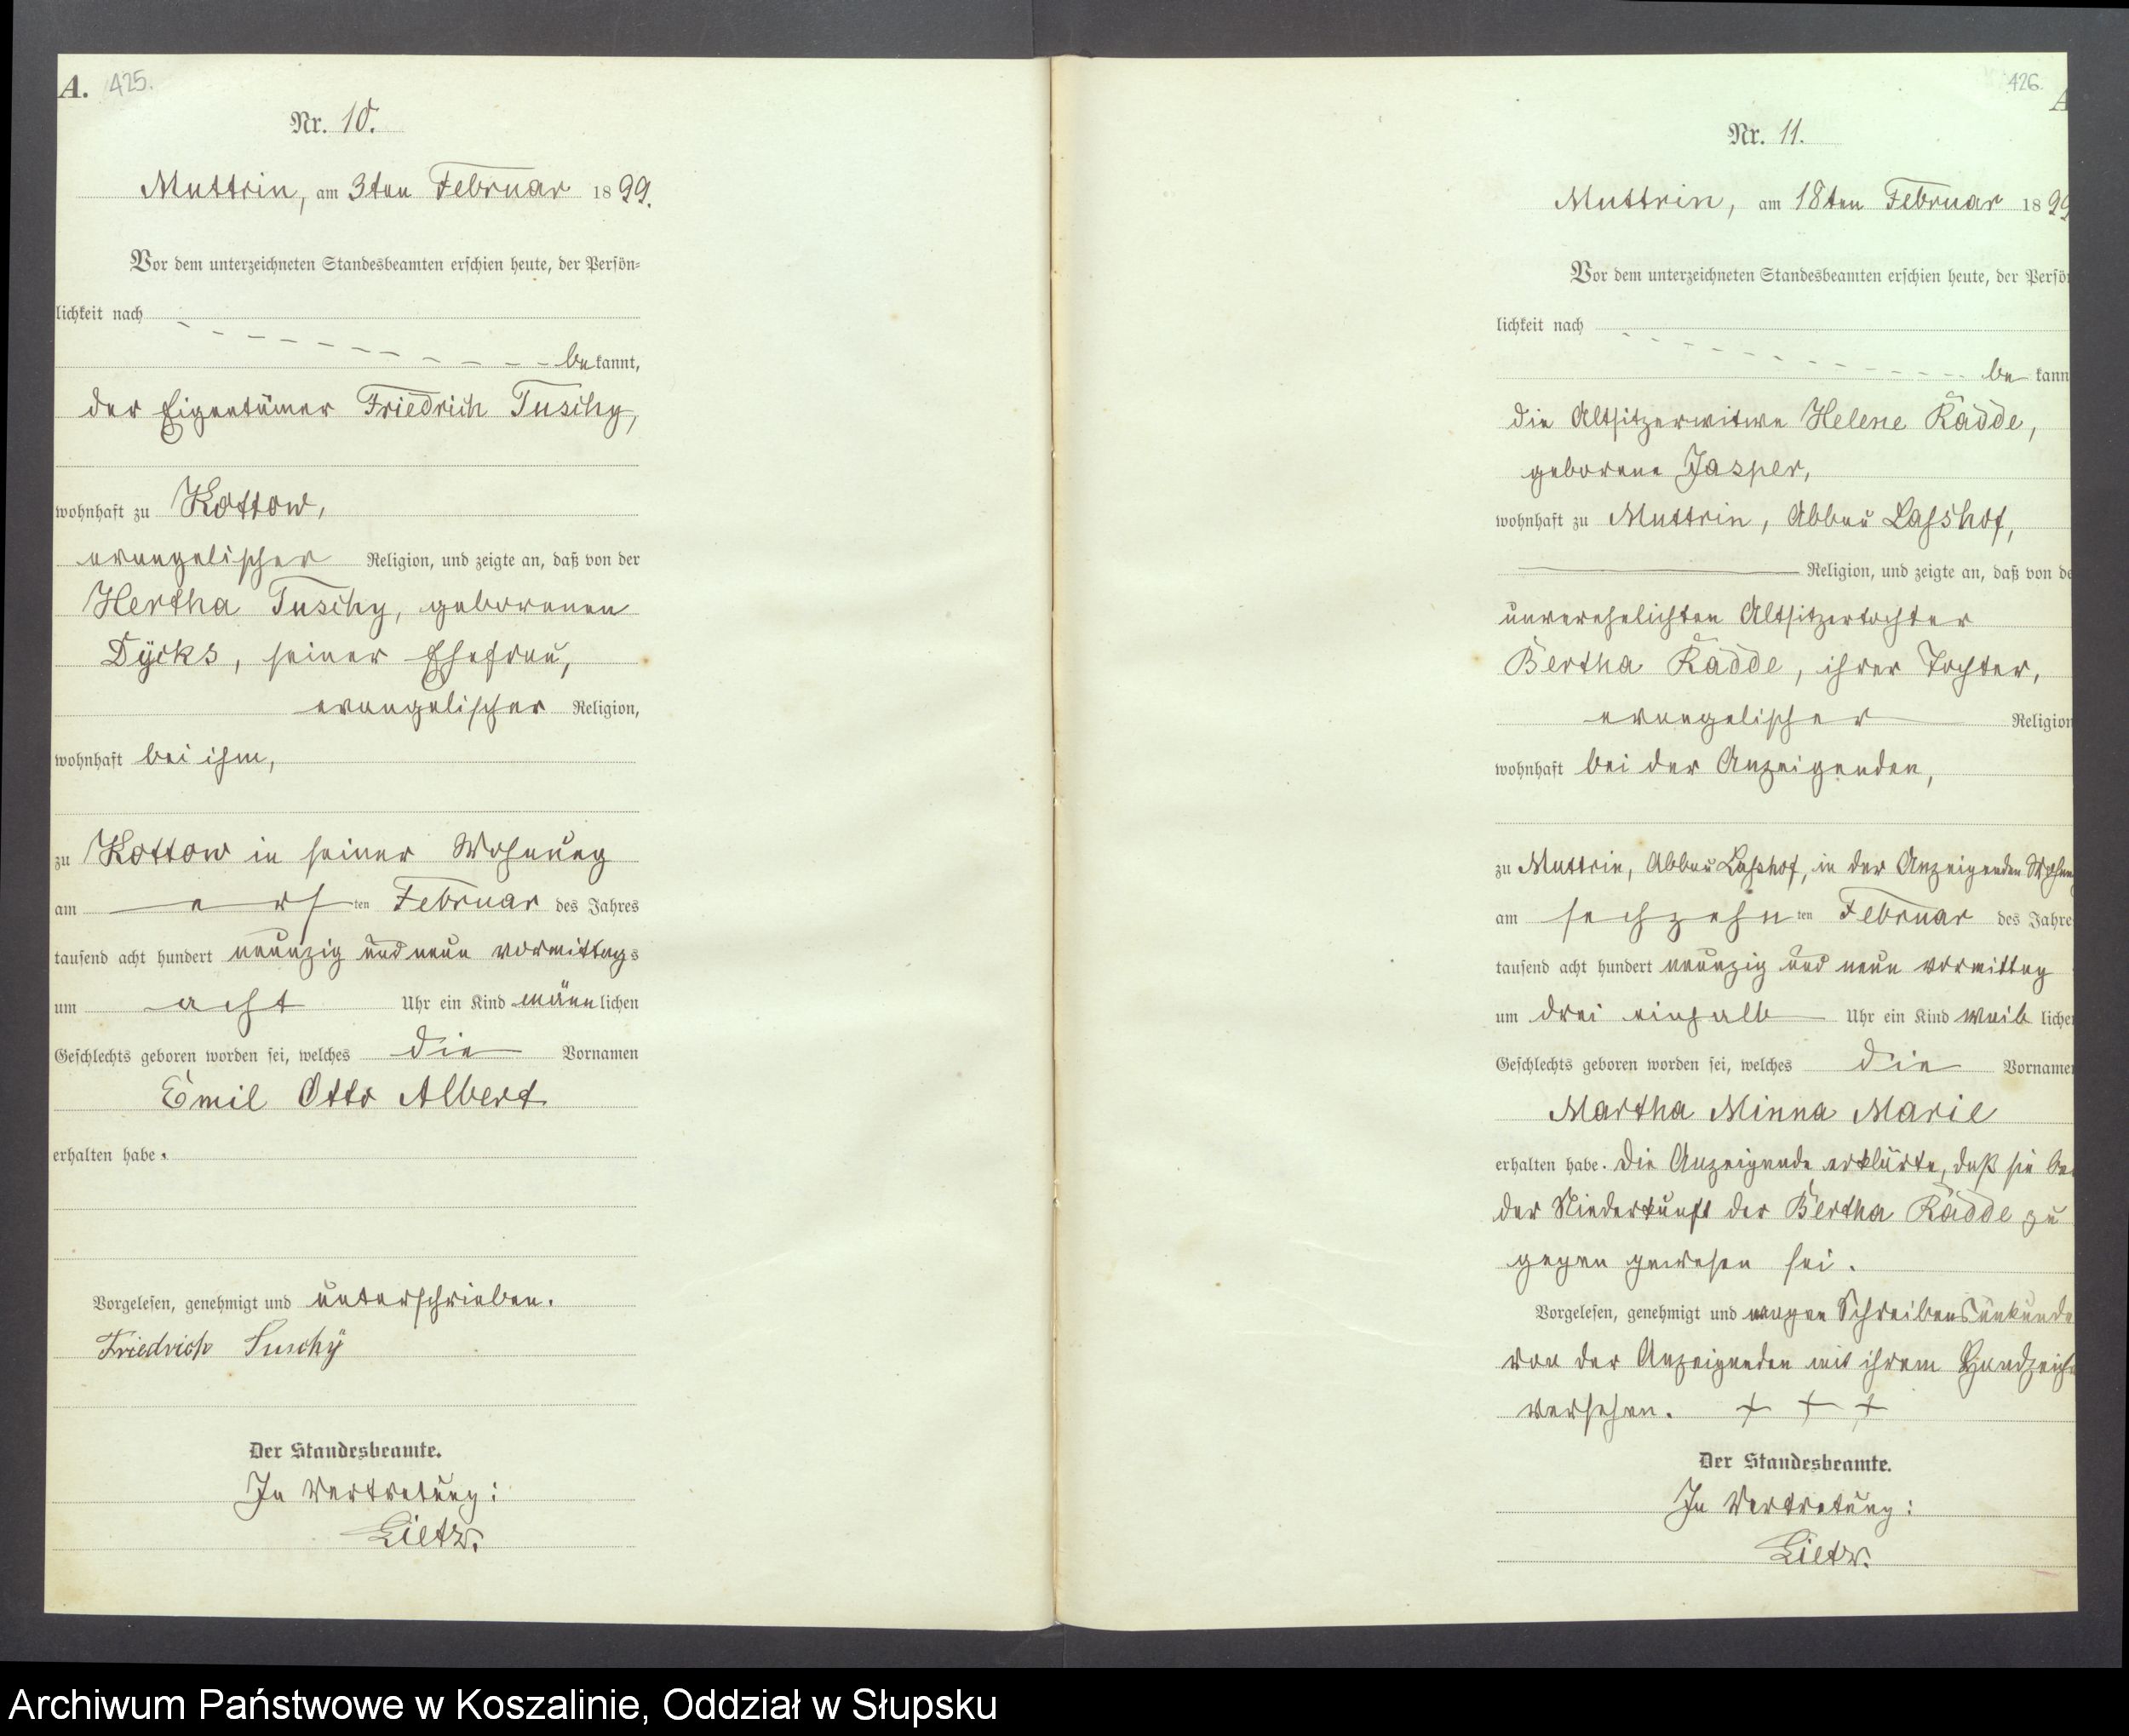 A. 425.
Nr. 10.
Muttrin, am 3ten Februar 1899.
Vor dem unterzeichneten Standesbeamten erschien heute, der Persön-
lichkeit nach
be kannt,
der Eigentümer Friedrich Tuschy,
wohnhaft zu Kottow,
evangelischer Religion, und zeigte an, daß von der
Hertha Tuschy, geborenen
Dycks, seiner Ehefrau,
evangelischer Religion,
wohnhaft bei ihm,
zu Kottow in seiner Wohnung
am ersten Februar des Jahres
tausend acht hundert neunzig und neun vormittags
um acht Uhr ein Kind männlichen
Geschlechts geboren worden sei, welches die Vornamen
Emil Otto Albert
erhalten habe.
Vorgelesen, genehmigt und unterschrieben.
Friedrich Tuschÿ
Der Standesbeamte.
In Vertretung:
Lietz.
426.
A
Nr. 11.
Muttrin, am 18ten Februar 1899
Vor dem unterzeichneten Standesbeamten erschien heute, der Persö
lichkeit nach
be kann
die Altsitzerwitwe Helene Radde,
geborene Jasper,
wohnhaft zu Muttrin, Abbau Lasshof,
Religion, und zeigte an, daß von de
unverehelichten Altsitzertochter
Bertha Radde, ihrer Tochter,
evangelischer Religion
wohnhaft bei der Anzeigenden,
zu Muttrin, Abbau Lasshof, in der Anzeigenden Wohnung
am sechzehnten Februar des Jahre
tausend acht hundert neunzig und neun vormittag
um drei einhalb Uhr ein Kind weib liche
Geschlechts geboren worden sei, welches die Vorname
Martha Minna Marie
erhalten habe. Die Anzeigende erklärte, daß sie be
der Niederkunft der Bertha Radde zu
gegen gewesen sei.
Vorgelesen, genehmigt und wegen Schreibensunkunde
von der Anzeigenden mit ihrem Handzeich
versehen. + + +
Der Standesbeamte.
In Vertretung:
Lietz.
Archiwum Państwowe w Koszalinie, Oddział w Słupsku